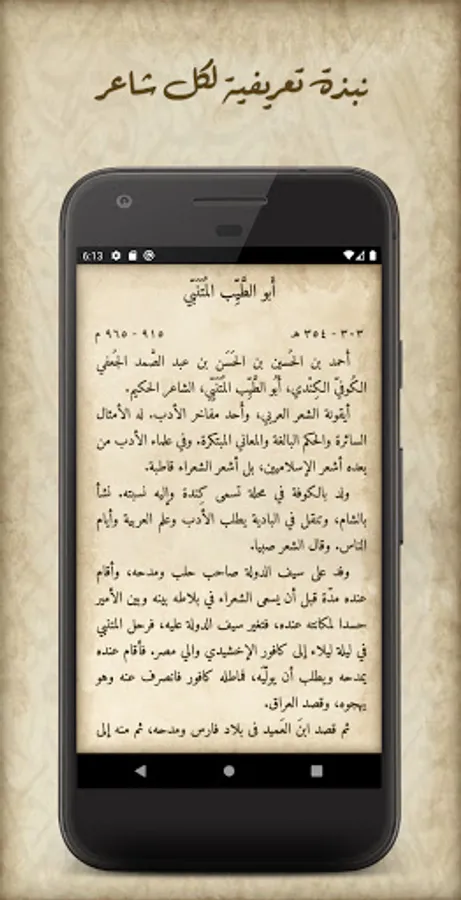 نبذة تعريفية لكل شاعر
6:13
أَبو الطَّيِّب المُتَنَبّي
٣٠٣ - ٣٥٤ هـ ٩١٥ - ٩٦٥ م
أحمد بن الحُسين بن الحَسَن بن عبد الصَّمد الجُعفي
الكُوفيّ الكِنْدي، أَبُو الطَّيِّب المُتَنَبِّي، الشاعر الحكيم.
أيقونة الشعر العربي، وأحد مفاخر الأدب. له الأمثال
السائرة والحكم البالغة والمعاني المبتكرة. وفي علماء الأدب من
بعده أشعر الإسلاميين، بل أشعر الشعراء قاطبة.
ولد بالكوفة في محلة تسمى كِندة وإليه نسبته. نشأ
بالشام، وتنقل في البادية يطلب الأدب وعلم العربية وأيام
الناس. وقال الشعر صبيا.
وفد على سيف الدولة صاحب حلب ومدحه، وأقام
عنده مدّة قبل أن يسعى الشعراء في بلاطه بينه وبين الأمير
حسدا لمكانته عنده، فتغير سيف الدولة عليه، فرحل المتنبي
في ليلة ليلاء إلى كافور الإخشيدي والي مصر. فأقام عنده
يمدحه ويطلب أن يولّيَه، فماطله كافور فانصرف عنه وهو
يهجوه، وقصد العراق.
ثم قصد ابنَ العَميد في بلاد فارس ومدحه، ثم منه إلى